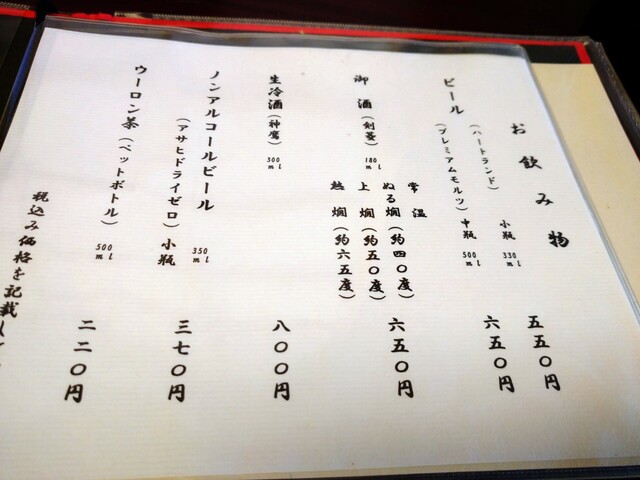 お飲み物
ビール
(ハートランド) 小瓶 330ml 五五〇円
(プレミアムモルツ) 中瓶 500ml 六五〇円
御酒(剣菱) 180ml 六五〇円
常温
ぬる燗(約四〇度)
上燗(約五〇度)
熱燗(約六五度)
生冷酒(神鷹) 300ml 八〇〇円
ノンアルコールビール
(アサヒドライゼロ) 小瓶 350ml 三七〇円
ウーロン茶(ペットボトル) 500ml 二二〇円
税込み価格を記載し